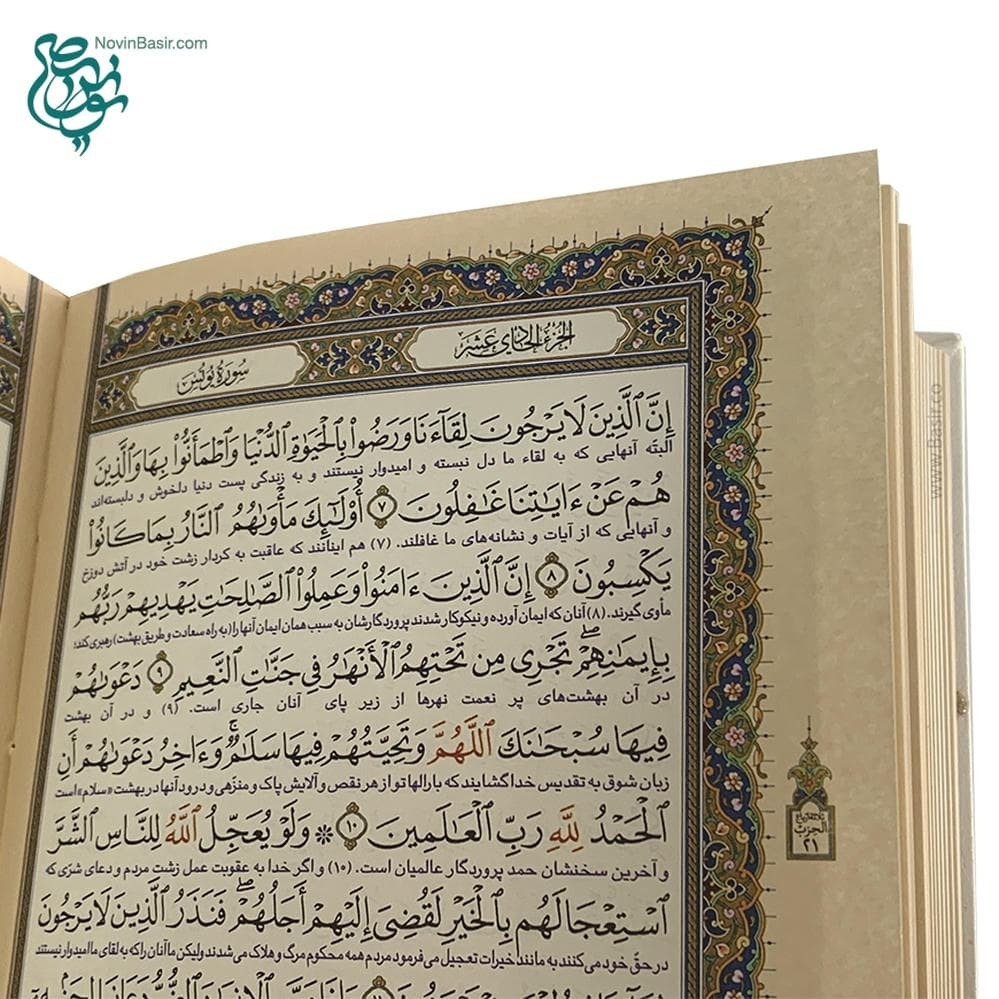 NovinBasir.com
الجزء الحادي عشر
سورة يونس
إِنَّ ٱلَّذِينَ لَا يَرْجُونَ لِقَآءَنَا وَرَضُوا۟ بِٱلْحَيَوٰةِ ٱلدُّنْيَا وَٱطْمَأَنُّوا۟ بِهَا وَٱلَّذِينَ
البته آنهایی که به لقاء ما دل نبسته و امیدوار نیستند و به زندگی پست دنیا دلخوش و دلبسته‌اند
هُمْ عَنْ ءَايَٰتِنَا غَٰفِلُونَ ٧ أُو۟لَٰٓئِكَ مَأْوَىٰهُمُ ٱلنَّارُ بِمَا كَانُوا۟
و آنهایی که از آیات و نشانه‌های ما غافلند. (۷) هم اینانند که عاقبت به کردار زشت خود در آتش دوزخ
يَكْسِبُونَ ٨ إِنَّ ٱلَّذِينَ ءَامَنُوا۟ وَعَمِلُوا۟ ٱلصَّٰلِحَٰتِ يَهْدِيهِمْ رَبُّهُم
مأوی گیرند. (۸) آنان که ایمان آورده و نیکوکار شدند پروردگارشان به سبب همان ایمان آنها را (به راه سعادت و طریق بهشت) رهبری کند؛
بِإِيمَٰنِهِمْ ۖ تَجْرِى مِن تَحْتِهِمُ ٱلْأَنْهَٰرُ فِى جَنَّٰتِ ٱلنَّعِيمِ ٩ دَعْوَىٰهُمْ
در آن بهشت‌های پر نعمت نهرها از زیر پای آنان جاری است. (۹) و در آن بهشت
فِيهَا سُبْحَٰنَكَ ٱللَّهُمَّ وَتَحِيَّتُهُمْ فِيهَا سَلَٰمٌ ۚ وَءَاخِرُ دَعْوَىٰهُمْ أَنِ
زبان شوق به تقدیس خدا گشایند که بارالها تو از هر نقص و آلایش پاک و منزّهی و درود آنها در بهشت «سلام» است
ٱلْحَمْدُ لِلَّهِ رَبِّ ٱلْعَٰلَمِينَ ١٠ * وَلَوْ يُعَجِّلُ ٱللَّهُ لِلنَّاسِ ٱلشَّرَّ
و آخرین سخنشان حمد پروردگار عالمیان است. (۱۰) و اگر خدا به عقوبت عمل زشت مردم و دعای شرّی که
ٱسْتِعْجَالَهُم بِٱلْخَيْرِ لَقُضِىَ إِلَيْهِمْ أَجَلُهُمْ ۖ فَنَذَرُ ٱلَّذِينَ لَا يَرْجُونَ
در حقّ خود می‌کنند به مانند خیرات تعجیل می‌فرمود مردم همه محکوم مرگ و هلاک می‌شدند ولیکن ما آنان را که به لقای ما امیدوار نیستند
الحزب
٢١
www.Basir.co